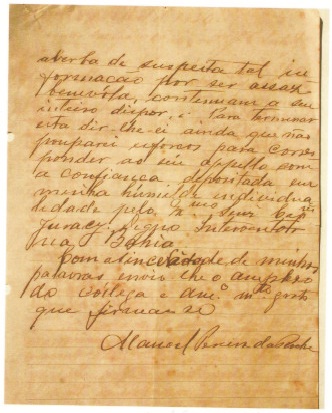 aberta de suspeita tal in
formação por ser assaz
benevola, continuam a seu
inteiro dispor. Para terminar
esta dir-lhe-ei ainda que não
pouparei esforços para corres
ponder ao seu appello com
a confiança depositada em
minha humilde individua
lidade pelo Snr.
Juracy, digno Interventor
na Bahia
Com a sinceridade de minhas
palavras envio-lhe o amplexo
do collega e am.º m.to grato
que firma-se
Manoel Pereira da Rocha